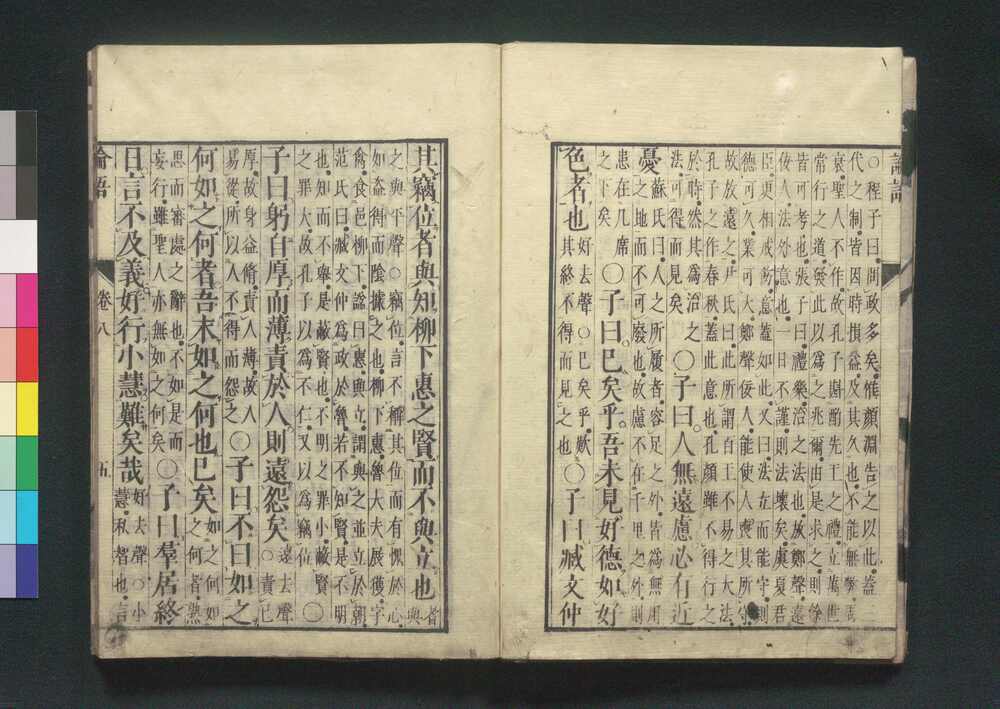 論語
○程子曰問政多矣惟顏淵告之以此蓋三
代之制皆因時損益及其久也不能無弊周
衰聖人不作故孔子斟酌先王之禮立萬世
常行之道發此以爲之兆爾由是求之則餘
皆可考也張子曰禮樂治之法也放鄭聲遠
佞人法外意也一日不謹則法壞矣虞夏君
臣更相戒飭意蓋如此又曰法立而能守則
德可久業可大鄭聲佞人能使人喪其所守
故放遠之尹氏曰此所謂百王不易之大法
孔子之作春秋蓋此意也孔顏雖不得行之
於時然其爲治之
法可得而見矣
○子曰人無遠慮必有近
憂
蘇氏曰人之所履者容足之外皆爲無用
之地而不可廢也故慮不在千里之外則
患在几席
之下矣
○子曰已矣乎吾未見好德如好
色者也
好去聲○已矣乎歎
其終不得而見之也
○子曰臧文仲
其竊位者與知柳下惠之賢而不與立也
者
與
之與平聲○竊位言不稱其位而有愧於心
如盜得而陰據之也柳下惠魯大夫展獲字
禽食邑柳下諡曰惠與立謂與之並立於朝
范氏曰臧文仲爲政於魯若不知賢是不明
也知而不舉是蔽賢也不明之罪小蔽賢
之罪大故孔子以爲不仁又以爲竊位
○
子曰躬自厚而薄責於人則遠怨矣
遠去聲
○責己
厚故身益脩責人薄故人
易從所以人不得而怨之
○子曰不曰如之
何如之何者吾末如之何也已矣
如之何如
之何者熟
思而審處之辭也不如是而
妄行雖聖人亦無如之何矣
○子曰羣居終
日言不及義好行小慧難矣哉
好去聲○小
慧私智也言
論語
卷八
五